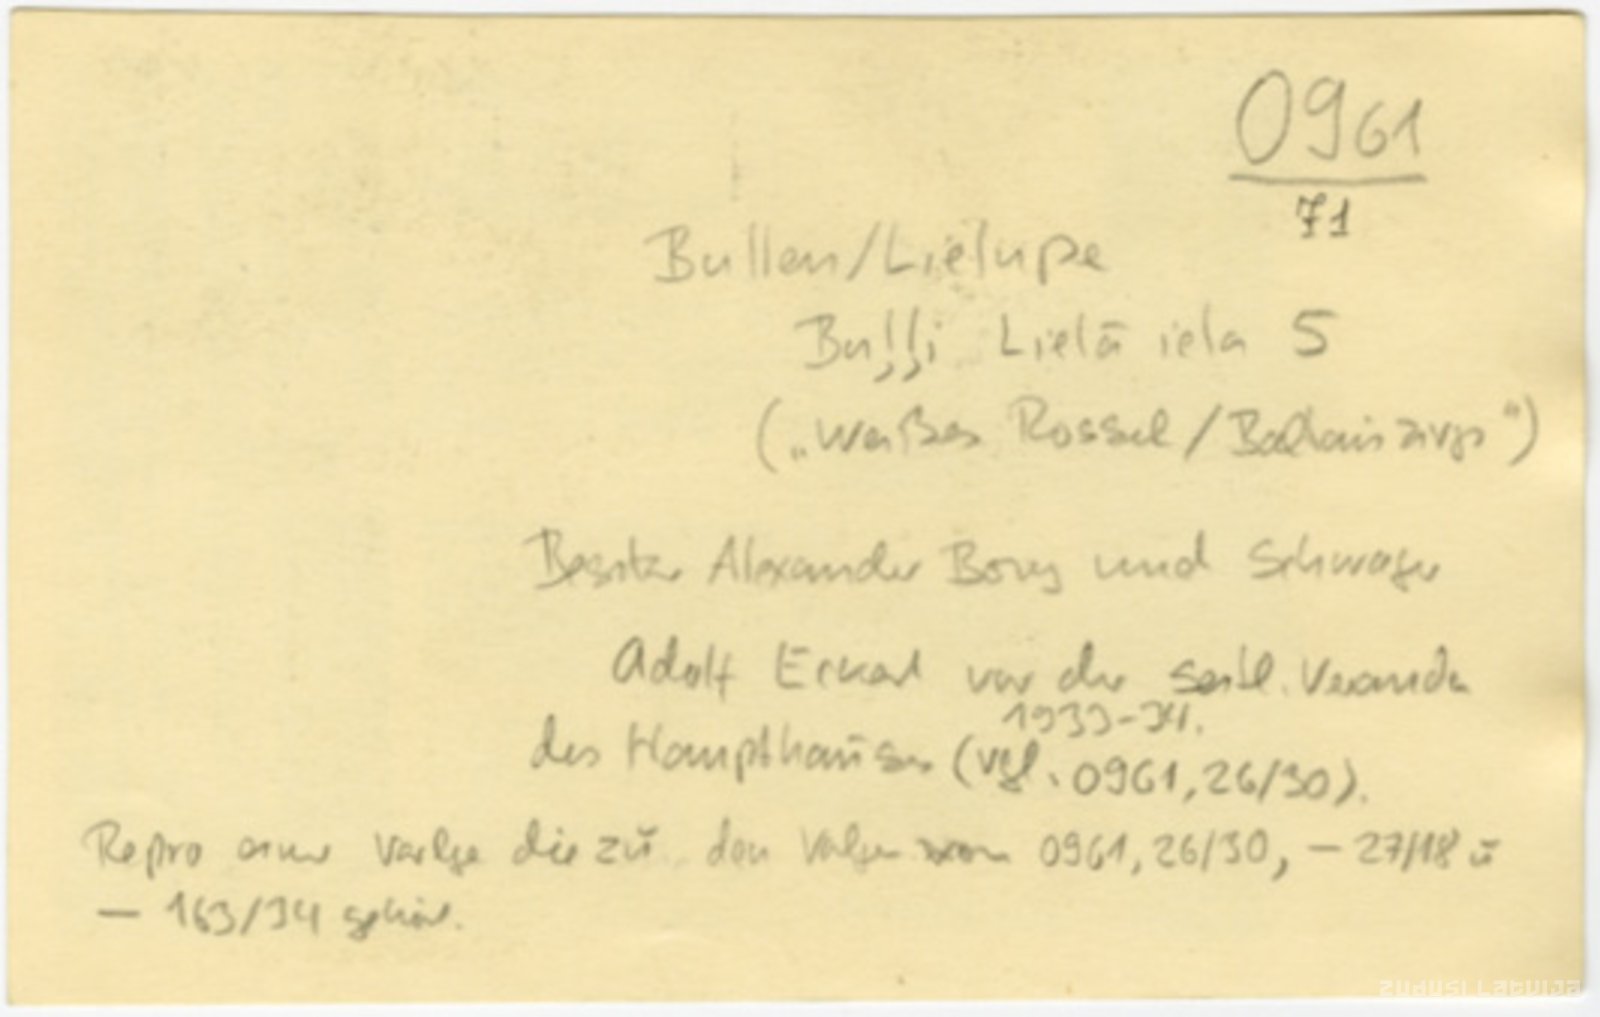 0961
71
Bullen/Lielupe
Buļļi Lielā iela 5
(„weißes Rössel/Baltais zirgs“)
Besitzer Alexander Borg und Schwager
Adolf Eckert vor der seitl. Veranda
1933-34.
des Haupthauses (vgl. 0961, 26/30).
Repro einer Vorlage die zu den Vorlagen von 0961, 26/30, – 27/18 u
– 163/34 gehört.
zudusi Latvija